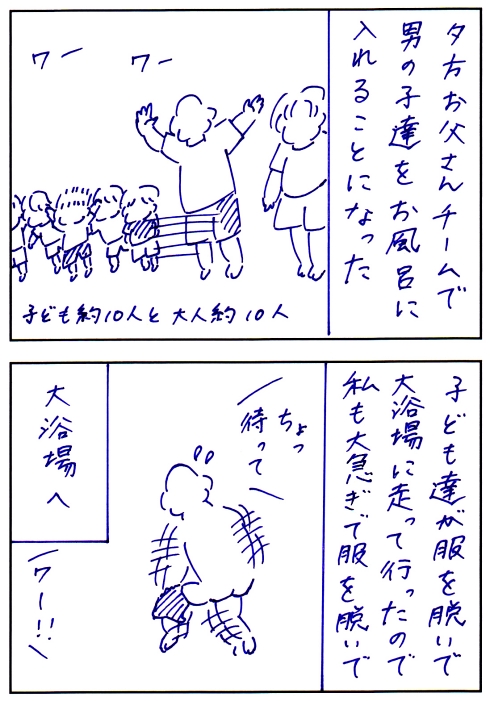 夕方お父さんチームで
男の子達をお風呂に
入れることになった
ワー
ワー
子ども約10人と大人約10人
子ども達が服を脱いで
大浴場に走って行ったので
私も大急ぎで服を脱いで
ちょっ
待って
大浴場へ
ワー!!